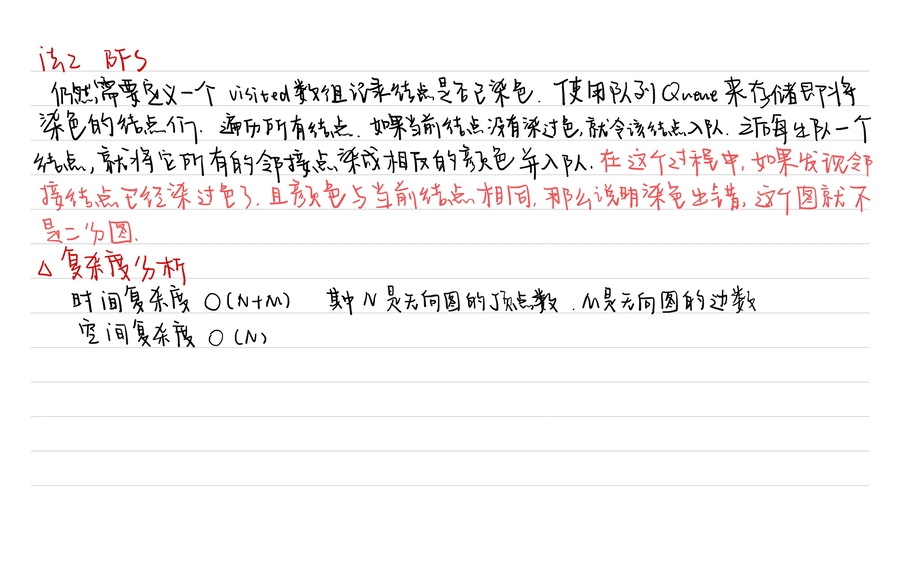 法2 BFS
仍然需要定义一个 visited数组记录结点是否已染色. 使用队列Queue来存储即将
染色的结点们. 遍历所有结点. 如果当前结点没有染过色,就令该结点入队. 之后每出队一个
结点,就将它所有的邻接点染成相反的颜色并入队. 在这个过程中,如果发现邻
接结点已经染过色了.且颜色与当前结点相同,那么说明染色出错,这个图就不
是二分图.
△ 复杂度分析
时间复杂度 O(N+M) 其中N是无向图的顶点数.M是无向图的边数
空间复杂度 O(N)